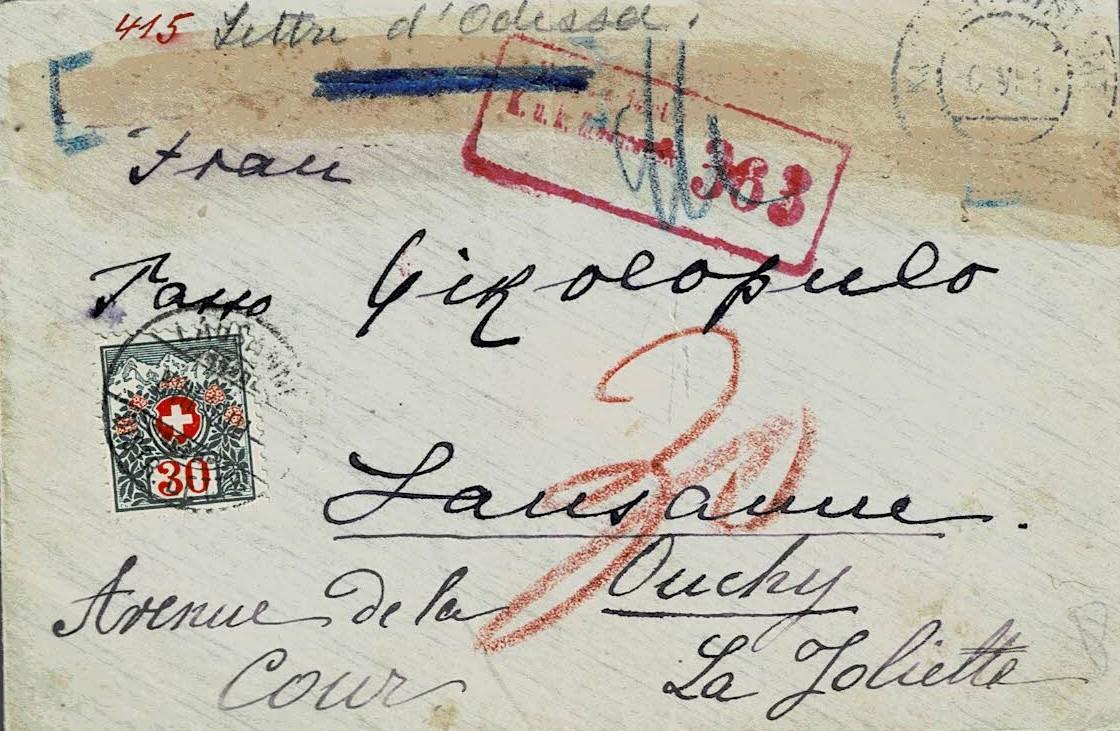 415 Lettre d'Odessa.
Frau
K. u. k.
363
Gikolopulo
30
30
Lausanne.
Ouchy
Avenue de la
Cour
La Joliette